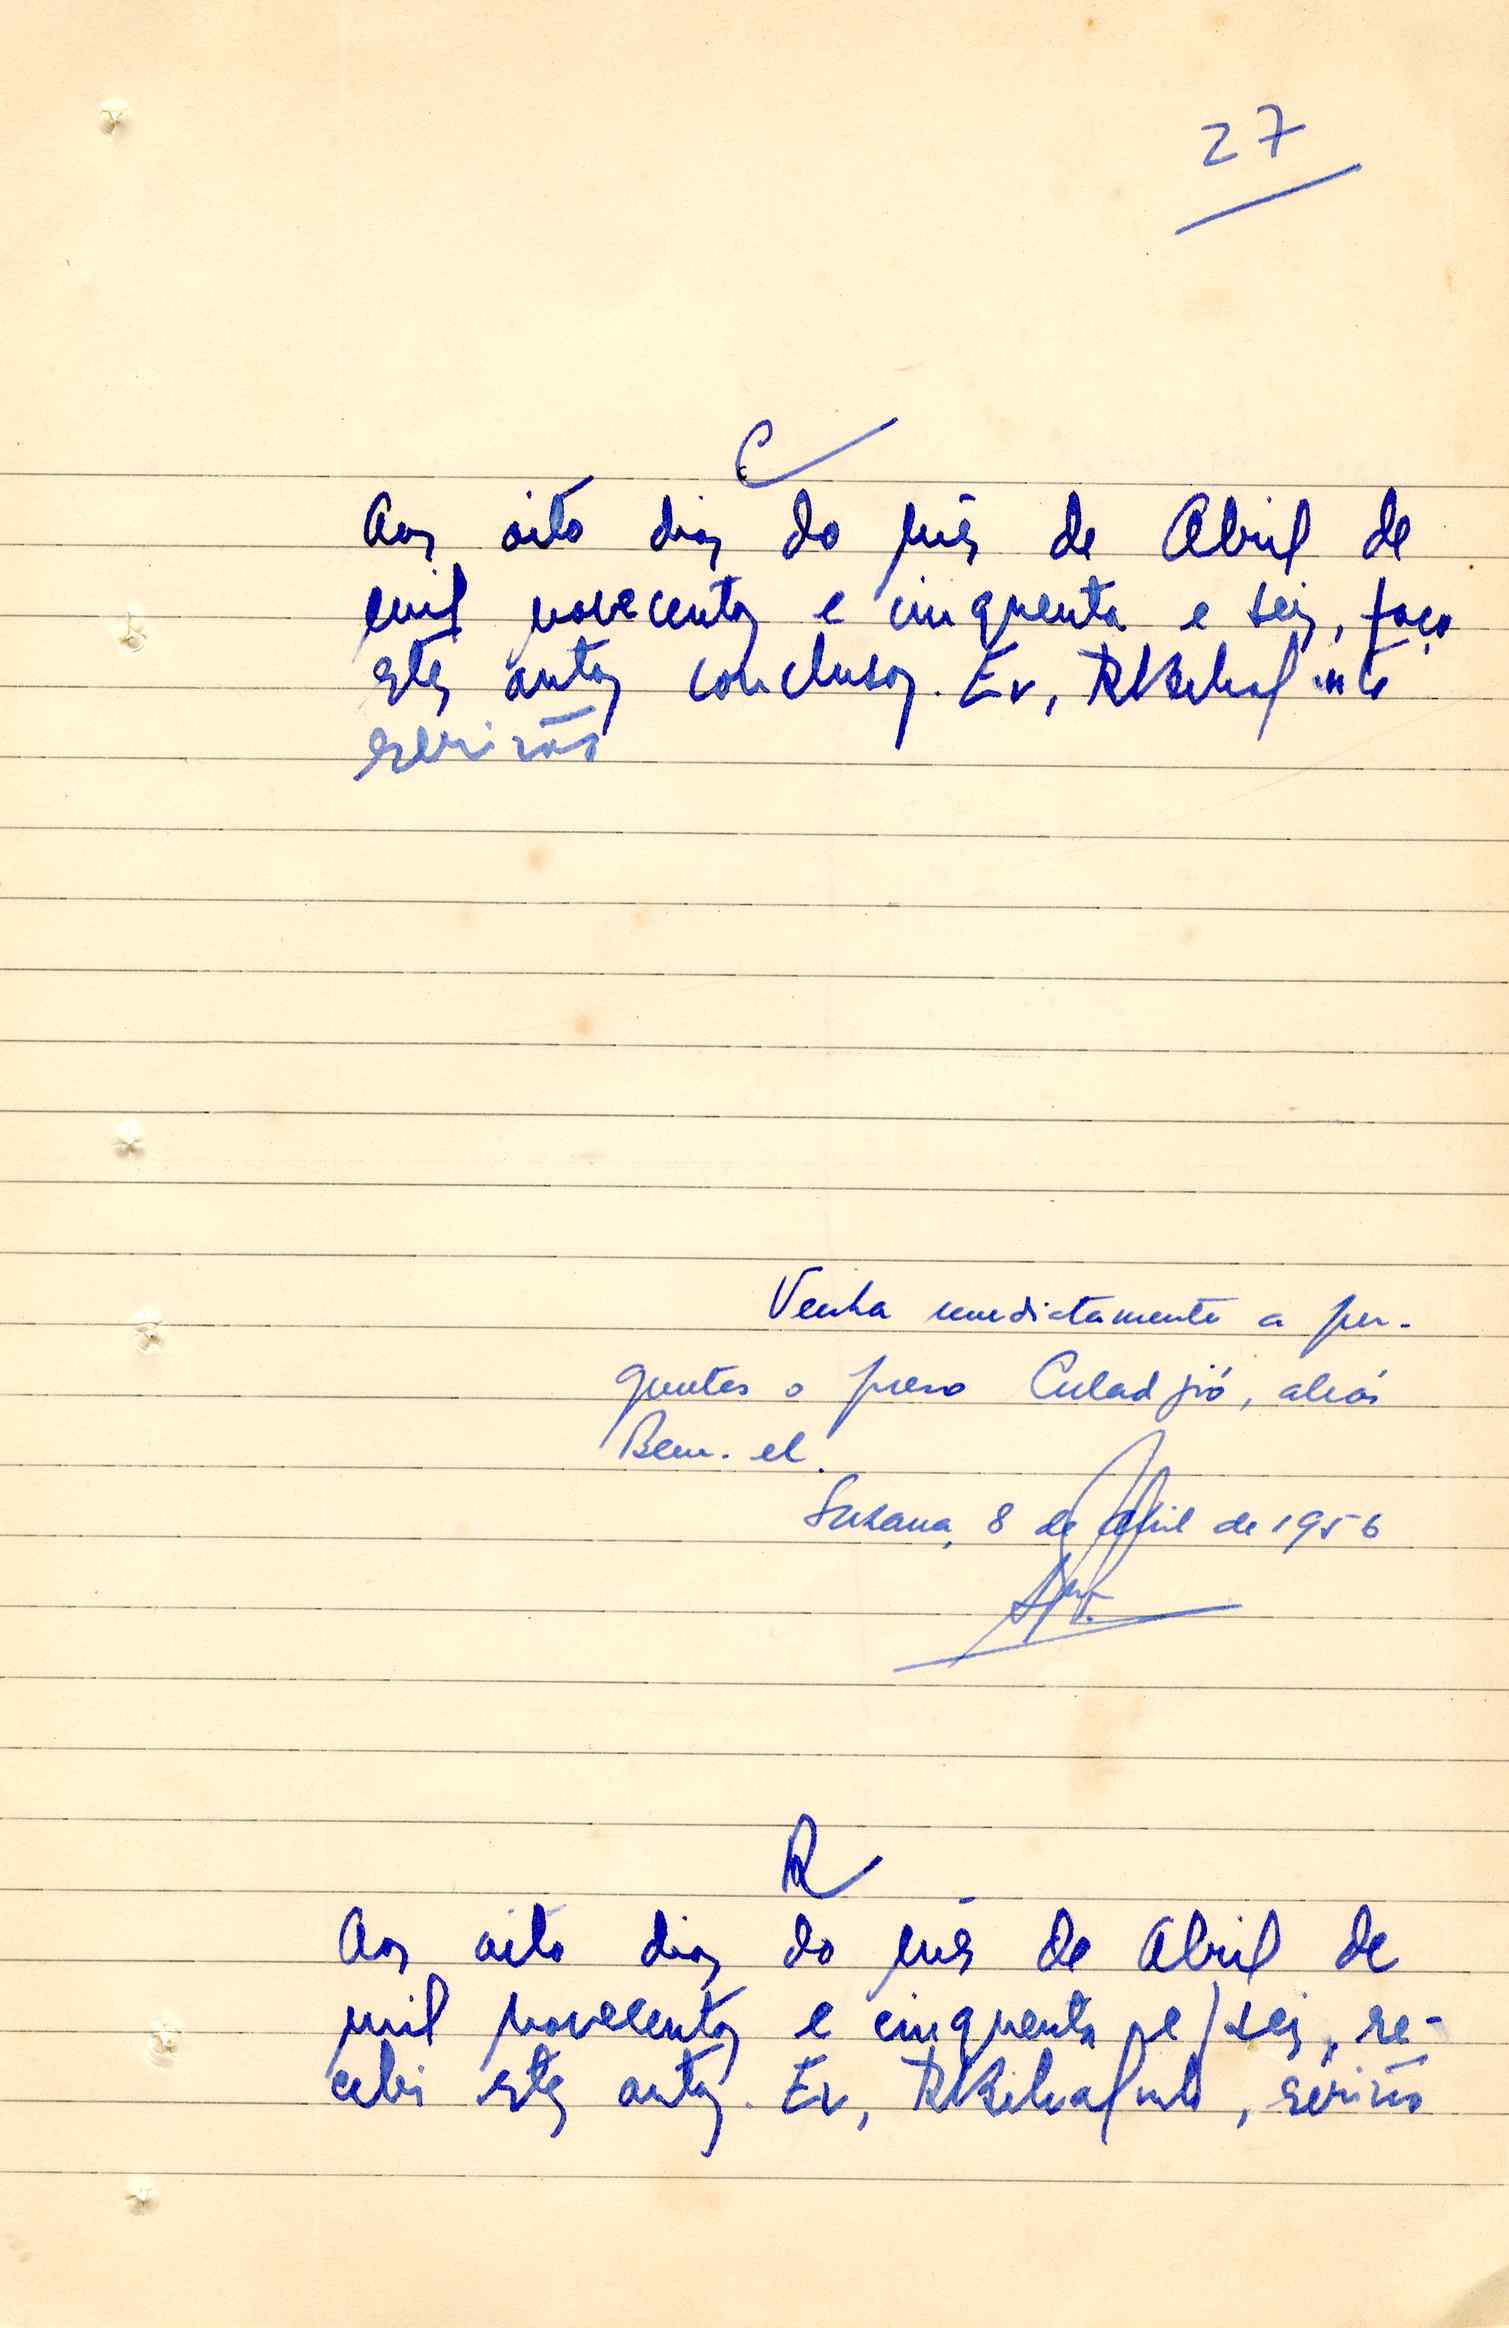 27
C
Aos oito dias do mês de Abril de
mil novecentos e cinquenta e seis, faço
estes autos conclusos. Eu,
escrivão
Venha imediatamente a per-
guntas o preso Culadjió, aliás
Bem. el.
Susana, 8 de Abril de 1956
R
Aos oito dias do mês de Abril de
mil novecentos e cinquenta e seis, re-
cebi estes autos. Eu, , escrivão